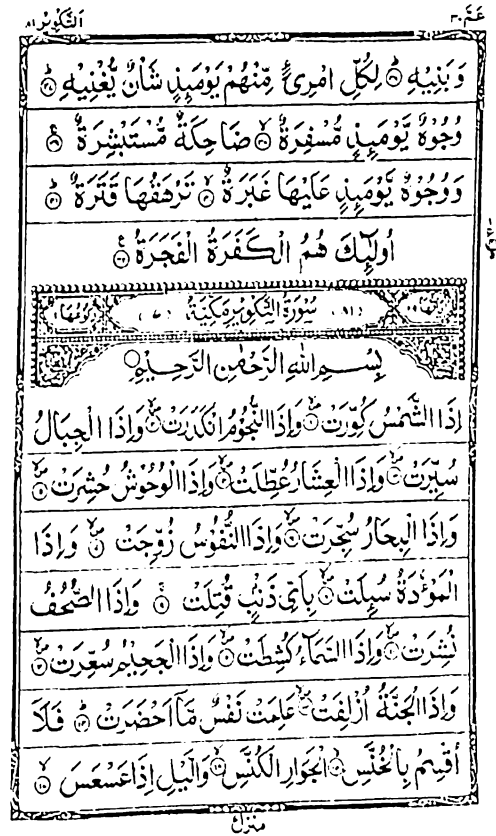 عَمَّ ۳۰
التَّكْوِيْر ۸۱
وَبَنِيْهِ ۝۳۶ لِكُلِّ امْرِئٍ مِّنْهُمْ يَوْمَئِذٍ شَاْنٌ يُّغْنِيْهِ ۝۳۷
وُجُوْهٌ يَّوْمَئِذٍ مُّسْفِرَةٌ ۝۳۸ ضَاحِكَةٌ مُّسْتَبْشِرَةٌ ۝۳۹
وَوُجُوْهٌ يَّوْمَئِذٍ عَلَيْهَا غَبَرَةٌ ۝۴۰ تَرْهَقُهَا قَتَرَةٌ ۝۴۱
اُولٰٓئِكَ هُمُ الْكَفَرَةُ الْفَجَرَةُ ۝۴۲
(۸۱) سُوْرَةُ التَّكْوِيْرِ مَكِّيَّةٌ (۷)
بِسْمِ اللهِ الرَّحْمٰنِ الرَّحِيْمِ
اِذَا الشَّمْسُ كُوِّرَتْ ۝۱ وَاِذَا النُّجُوْمُ انْكَدَرَتْ ۝۲ وَاِذَا الْجِبَالُ
سُيِّرَتْ ۝۳ وَاِذَا الْعِشَارُ عُطِّلَتْ ۝۴ وَاِذَا الْوُحُوْشُ حُشِرَتْ ۝۵
وَاِذَا الْبِحَارُ سُجِّرَتْ ۝۶ وَاِذَا النُّفُوْسُ زُوِّجَتْ ۝۷ وَاِذَا
الْمَوْءٗدَةُ سُئِلَتْ ۝۸ بِاَيِّ ذَنْۢبٍ قُتِلَتْ ۝۹ وَاِذَا الصُّحُفُ
نُشِرَتْ ۝۱۰ وَاِذَا السَّمَآءُ كُشِطَتْ ۝۱۱ وَاِذَا الْجَحِيْمُ سُعِّرَتْ ۝۱۲
وَاِذَا الْجَنَّةُ اُزْلِفَتْ ۝۱۳ عَلِمَتْ نَفْسٌ مَّاۤ اَحْضَرَتْ ۝۱۴ فَلَاۤ
اُقْسِمُ بِالْخُنَّسِ ۝۱۵ الْجَوَارِ الْكُنَّسِ ۝۱۶ وَالَّيْلِ اِذَا عَسْعَسَ ۝۱۷
منزل